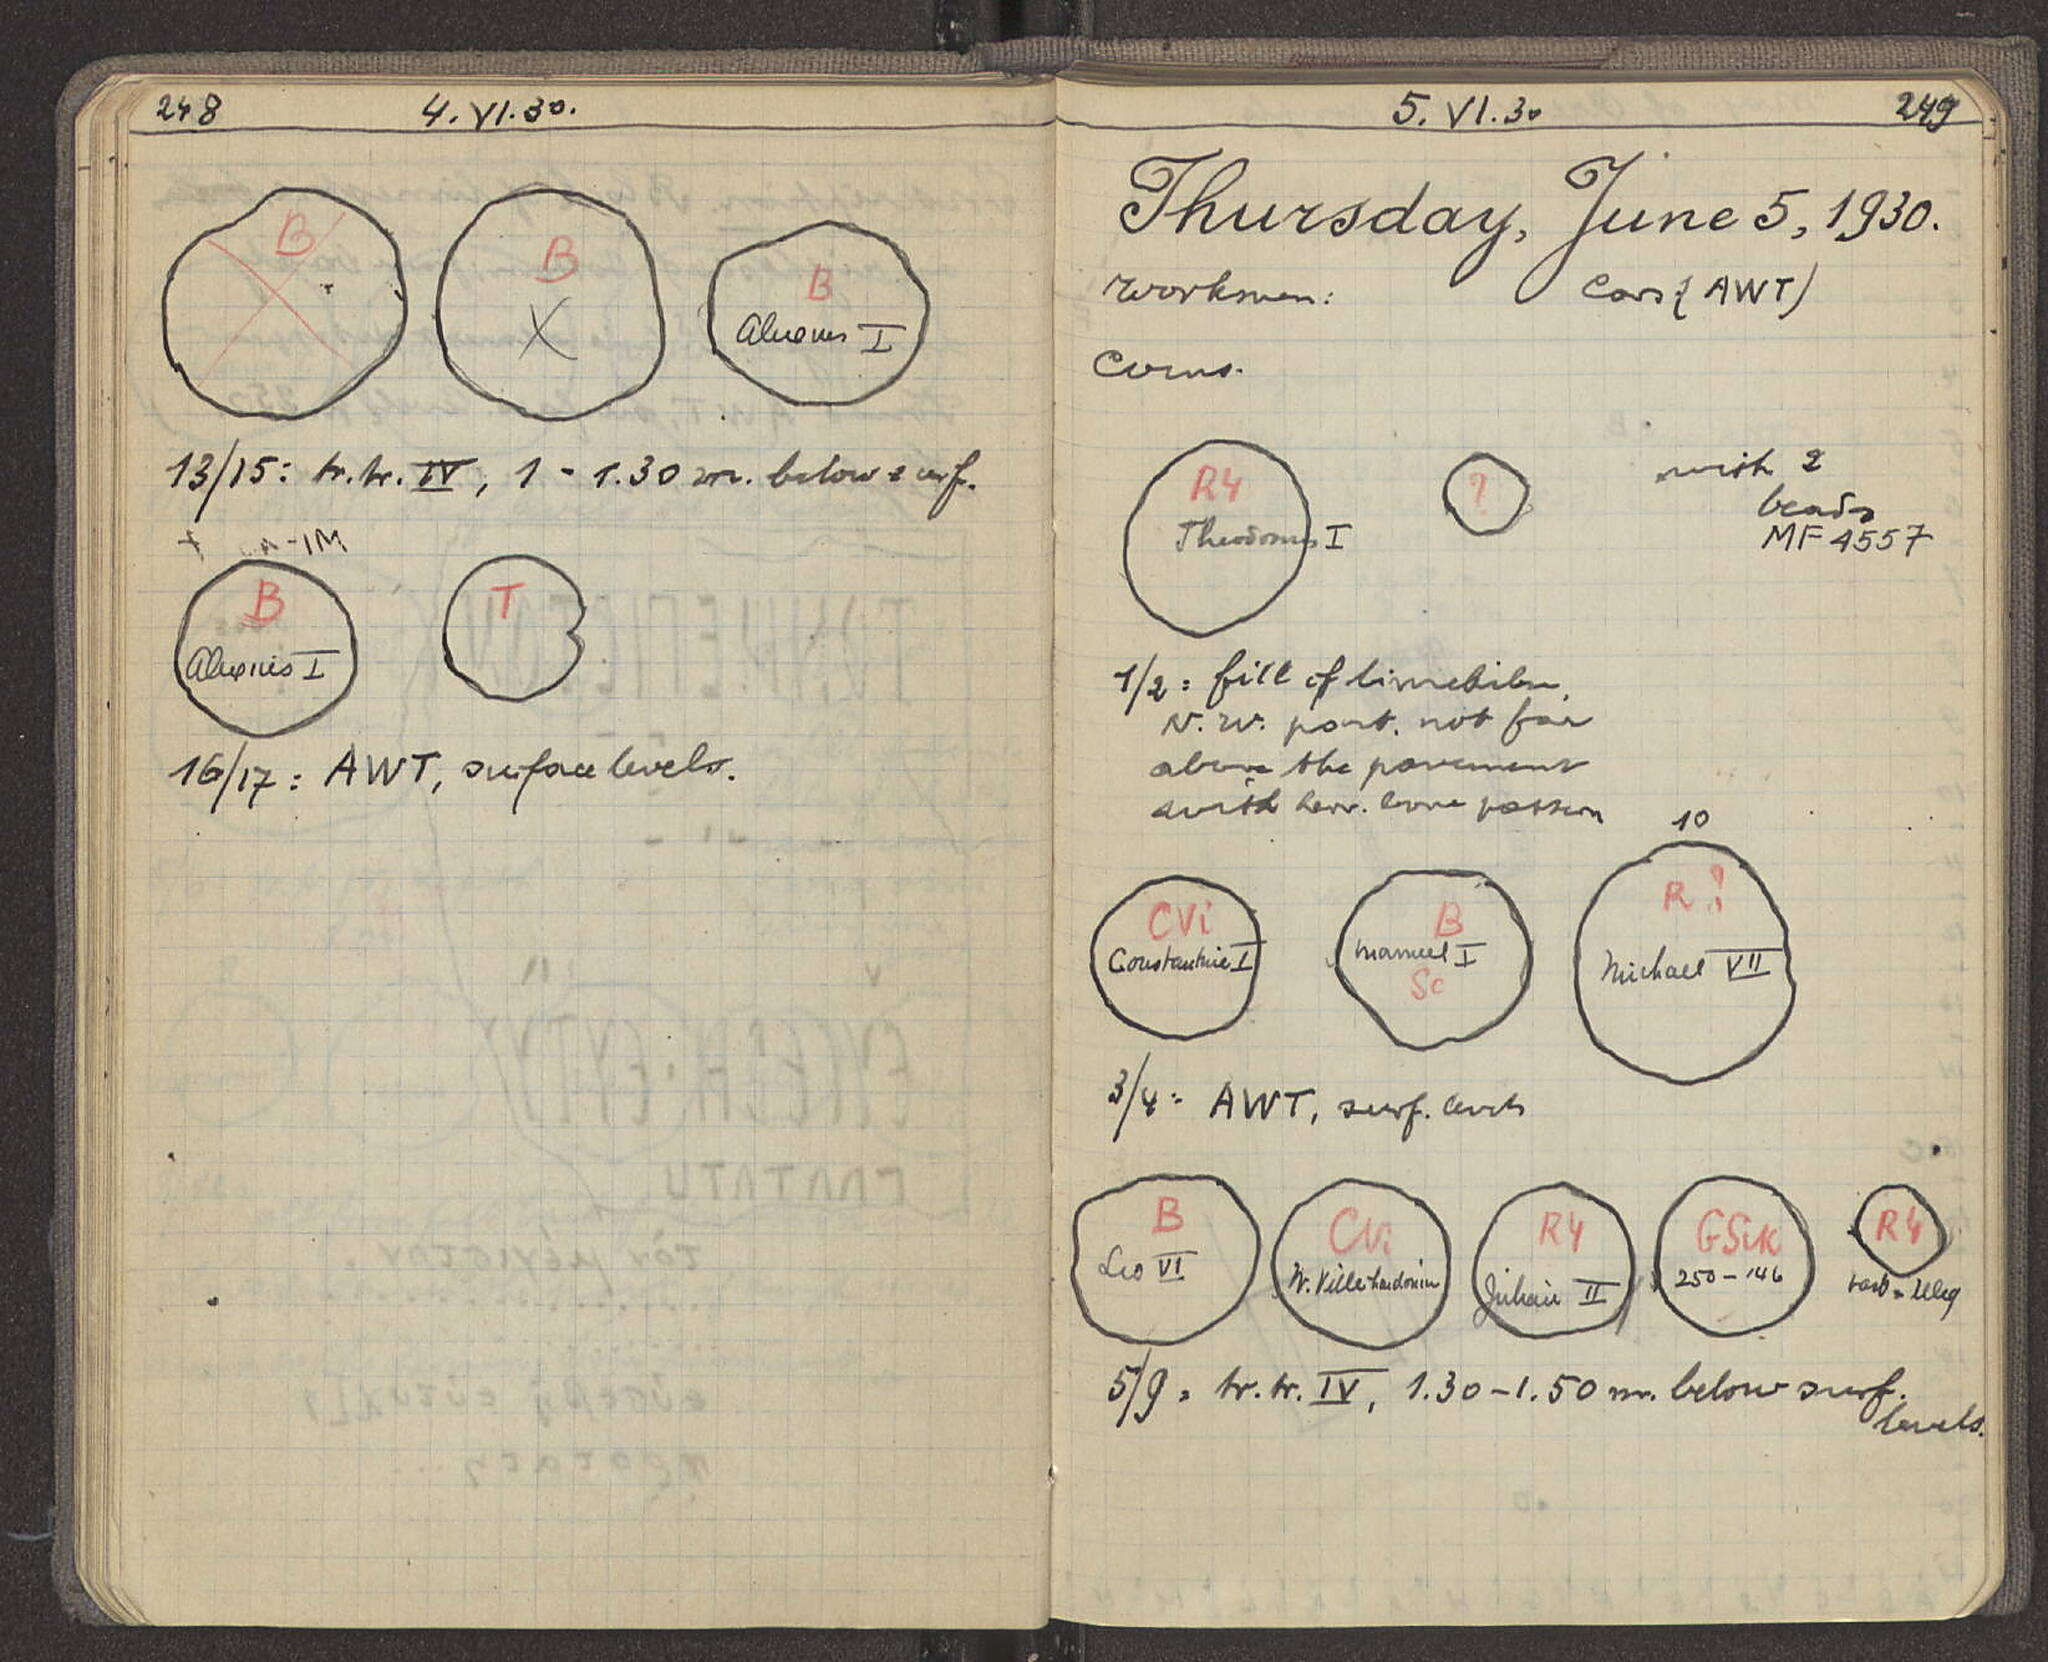 248
4. VI. 30.
B
B
X
B
Alexius I
13/15: tr. tr. IV, 1 - 1.30 m. below surf.
B
Alexius I
T
16/17: AWT, surface levels.
5. VI. 30
249
Thursday, June 5, 1930.
Workmen:
Cars (AWT)
Coins.
R4
Theodosius I
?
with 2
beads
MF 4557
1/2 = fill of
N. W. part. not far
above the pavement
with herr. bone pattern
CVi
Constantine I
B
Manuel I
Sc
10
R ?
Michael VII
3/4 = AWT, surf. levels
B
Leo VI
CVi
W. Villehardouin
R4
Julian II
GSik
250-146
R4
5/9 = tr. tr. IV, 1.30-1.50 m. below surf.
levels.